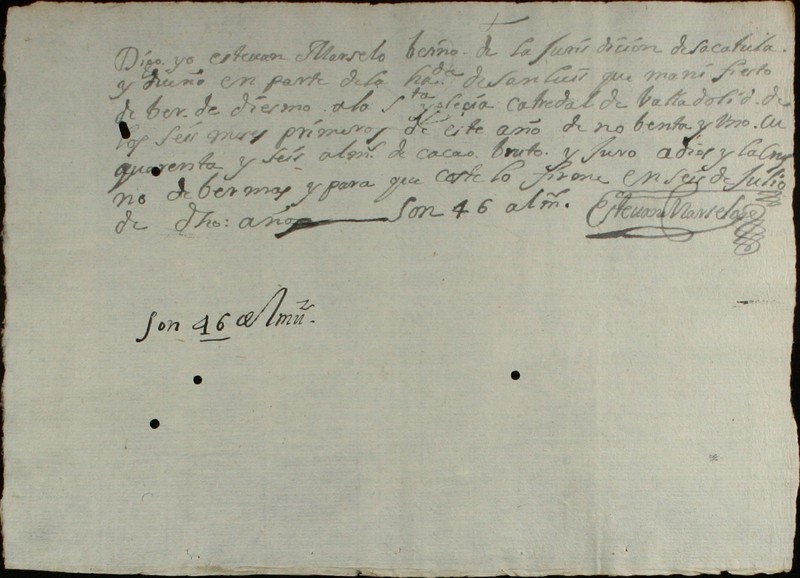 Digo. yo estevan Marselo beino. de la Jurisdicion de sacatula.
y dueño en parte de la hada. de San luis que mani fiesto
de ber. de diesmo a la Sta yglecia catredal de Valladolid. de
los seis meses primeros de este año de nobenta y Uno.
quarenta y seis almˢ. de cacao. bruto. y Juro adios y la Cruz
no de ber mas y para que coste lo firme en seis de Julio
de dho: año Son 46 alms. Estevan Marselo
Son 46 almũs.